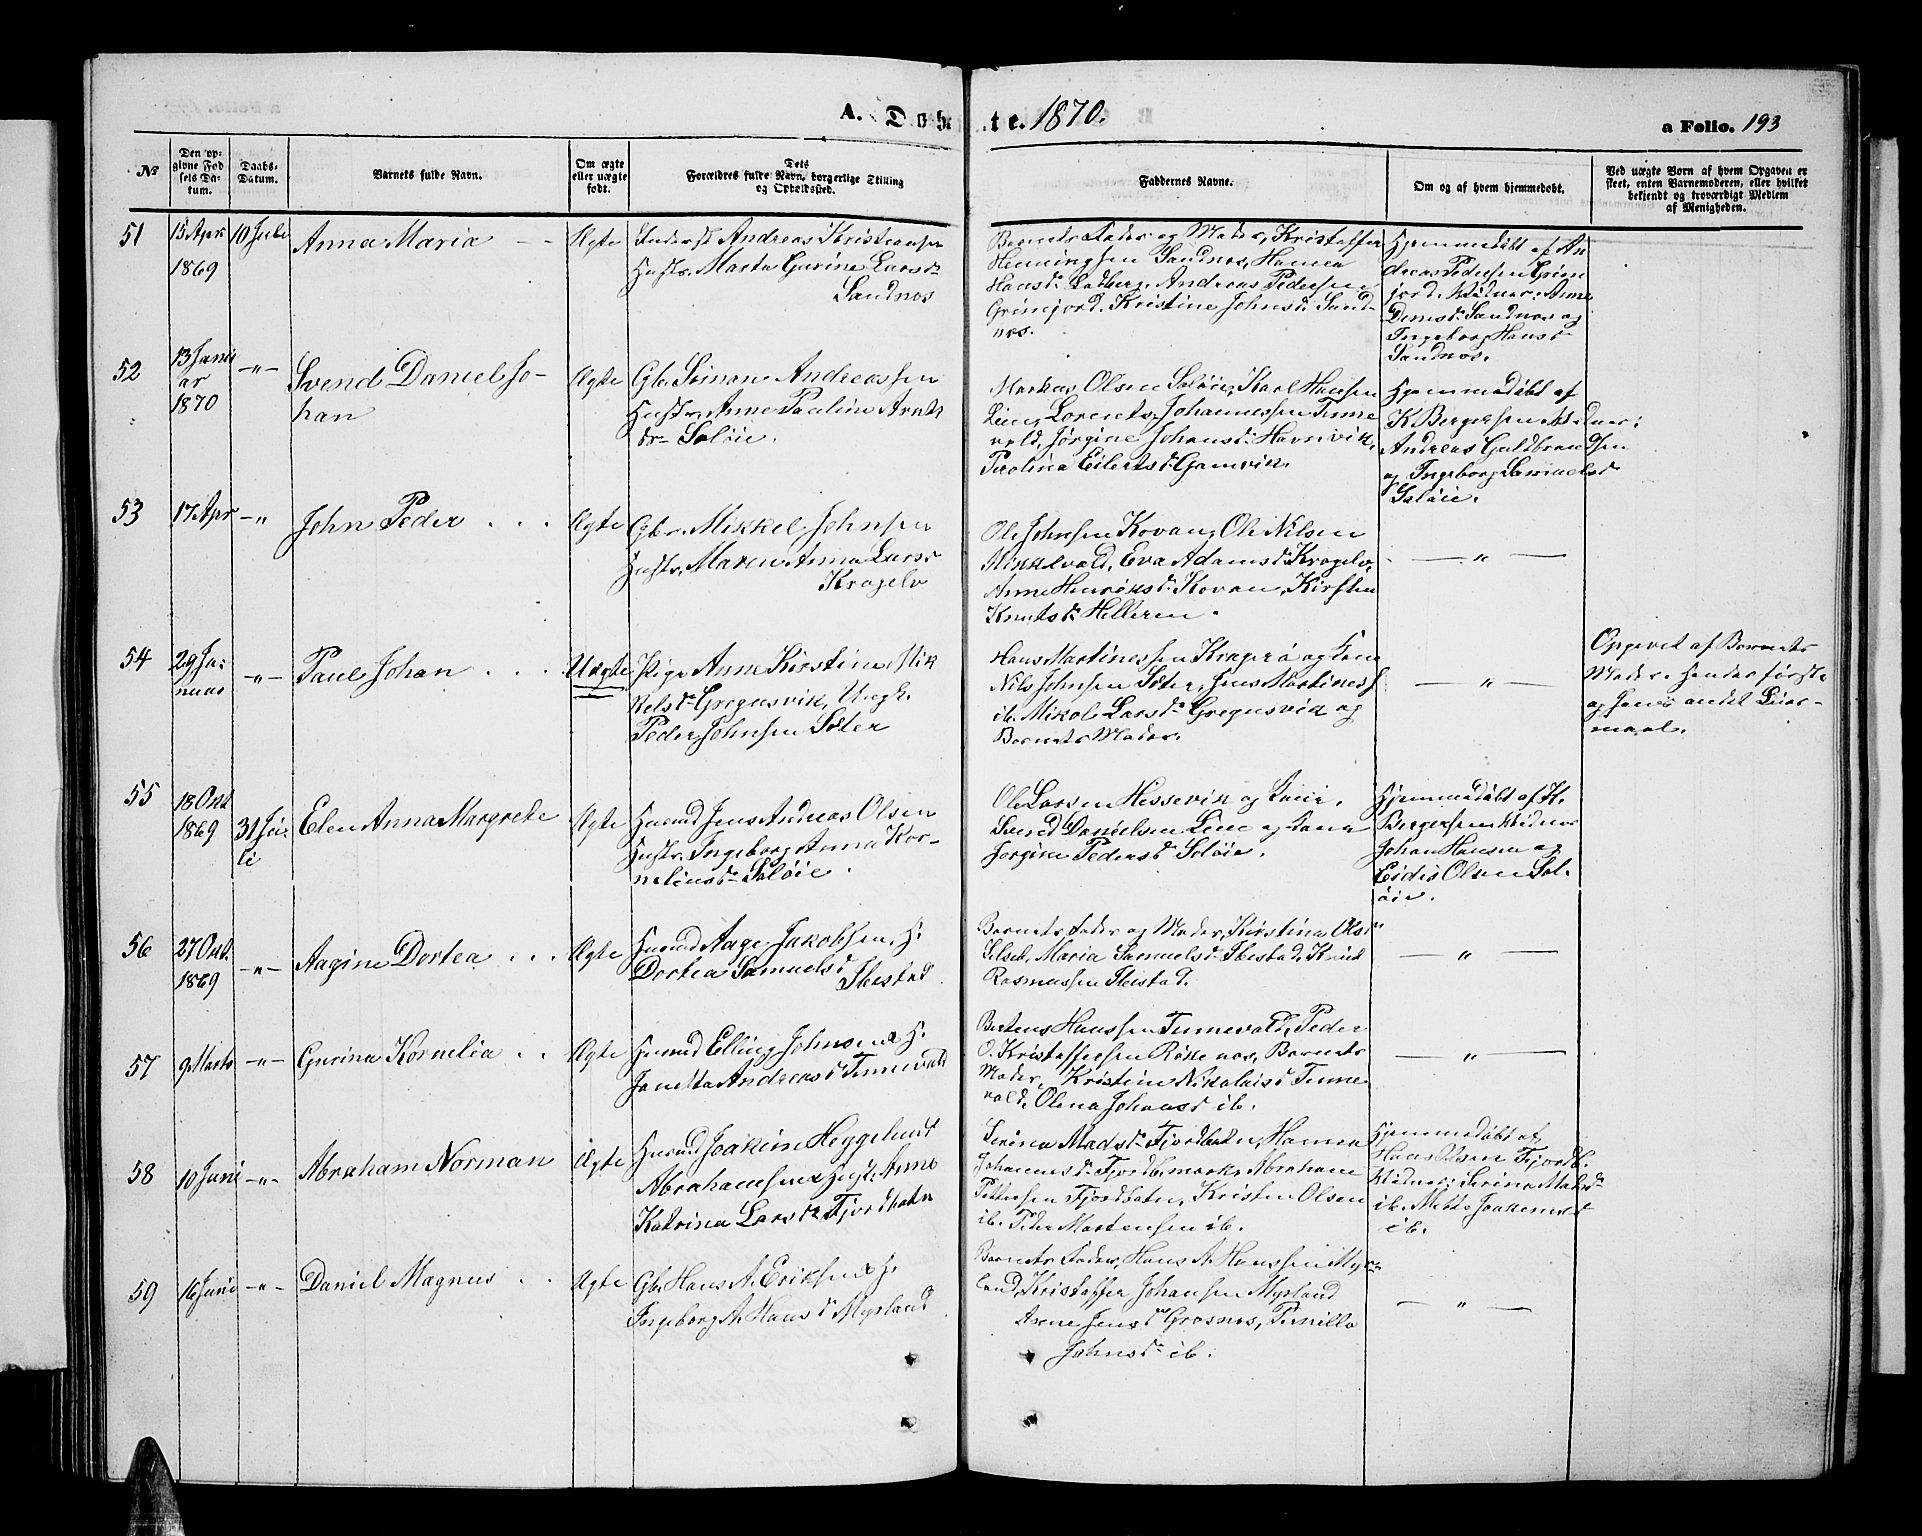 A. Døbte. 1870.
a Folio. 193
No
Den op-
givne Fød
sels Da-
tum.
Daabs-
Datum.
Barnets fulde Navn.
Om ægte
eller uægte
født.
Dets
Forældres fulde Navn, borgerlige Stilling
og Opholdssted.
Faddernes Navne.
Om og af hvem hjemmedøbt.
Ved uægte Børn af hvem Opgaven er
skeet, enten Barnemoderen, eller hvilket
bekjendt og troværdigt Medlem
af Menigheden.
51
15 Apr
1869
10 Juli
Anna Maria
Ægte
Andreas Kristiansen
Hustr. Marta Gurine Larsd
Sandnes
Barnets Fader og Moder, Kristoffer
Henningsen Sandnes, Hanna
Hansd Andreas Pedersen
Kristine Johnsd. Sand-
nes.
Hjemmedøbt af An
dreas Pedersen
Vidner: Anne
Sandnes og
Ingeborg Hansd
Sandnes.
52
13 Janu
ar
1870
-"-
Svend Daniel Jo-
han
Ægte
Gbr. Simon Andreassen
Hustr. Anne Paulina Arnts
dr Saløie.
Markus Olsen Saløie, Karl Hansen
Lorents Johannessen Tinne
vald, Jørgine Johansd Havnvik,
Eilertsd Gamvik.
Hjemmedøbt af
K Bergersen Vidner:
Andreas Guldbrandsen
og Ingeborg Samuelsd
Saløie.
53
17 Apr
-"
John Peder
Ægte
Gbr. Mikkel Johnsen
Hustr. Maren Anna Larsd
Krogelv
Ole Johnsen Kovan, Ole Nilsen
Eva Adamsd Krogelv,
Anne Henriksd Kovan, Kirsten
Knutsd Helleren.
— " —
54
29 Ja-
nuar
-"-
Paul Johan
Uægte
Pige Anne Kirstine Mik
kelsd Gregusvik, Ungk.
Peder Johnsen Sæter
Hans Martinessen og
Nils Johnsen Sæter, Jens Martiness
ib. Mikol Larsd Gregusvik og
Barnets Moder.
— " —
Opgivet af Barnets
Moder. Hendes første
og hans andet Leier-
maal.
55
18 Okt
1869
31 Ju-
li
Elen Anna Margrete
Ægte
Husmd Jens Andreas Olsen
Hustr. Ingeborg Anna Kor-
neliusd Saløie.
Ole Larsen Hessevik og
Svend Danielsen og
Jorgine Pedersd Saløie.
Hjemmedøbt af K.
Bergersen Vidner
Johan Hansen og
Olsen Sal-
øie.
56
27 Okt.
1869
-"-
Aagine Dortea
Ægte
Husmd Aage Jakobsen, H.
Dortea Samuelsd
Ibestad
Barnets Fader og Moder, Kirstina Olsd
Maria Samuelsd Ibestad, Knud
Rasmussen Ibestad.
— " —
57
9 Marts
-"-
Gurina Kornelia
Ægte
Husmd Elling Johnsen & H.
Janetta Andreasd Tinnevald
Hanssen Tinnevald, Peder
O. Kristoffersen Røkenes, Barnets
Moder, Kristine Nikolaisd Tinne
vald, Olena Johansd ib.
— " —
58
10 Juni
-"-
Abraham Norman
Ægte
Husmd Joakim Heggelund
Abrahamsen & Hustr. Anne
Katrina Larsd Fjordbotn
Serina Madsd Fjordbotn, Hanna
Johannesd Fjordbmark, Abraham
Pettersen Fjordbotn, Kristen Olsen
ib. Peder Mortensen ib.
Hjemmedøbt af
Hans Olsen Fjordb.
Vidner: Serina Madsd
ib. Mette Joakimsd
ib.
59
16 Juni
-"-
Daniel Magnus
Ægte
Gbr. Hans A. Eriksen & H.
Ingeborg A. Hansd Myrland
Barnets Fader, Hans A. Hanssen Myr-
land, Kristoffer Johansen Myrland
Jensd Grosnes, Pernilla
Johnsd ib.
— " —